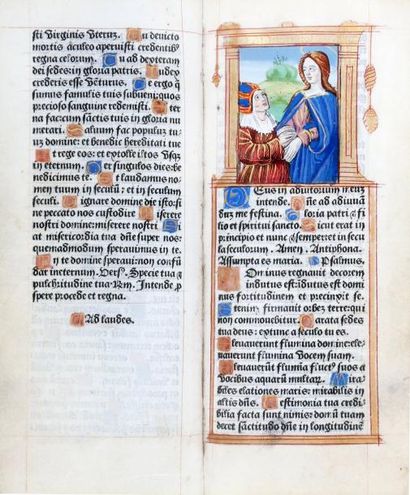 sti Virginis Uterum. Tu devicto
mortis aculeo aperuisti credentibus
regna celorum. Tu ad dexteram
dei sedes: in gloria patris. Iudex
crederis esse Venturus. Te ergo q̄
sumus famulis tuis subueni: quos
precioso sanguine redemisti. Eter
na fac: cum sāctis tuis in gloria nu
merari. Saluum fac populum tuū
tuū domine: et benedic hereditati tue
Et rege eos: et extolle illos Vsq̄
in eternum. Per singulos dies: be
nedicimus te. Et laudamus no
men tuum in seculū: et in seculum
seculi. Dignare domine die isto: si
ne peccato nos custodire. Miserere
nostri domine: miserere nostri. Fi
at misericordia tua dn̄e super nos:
quemadmodum sperauimus in te.
In te domine speraui: non confū
dar in eternum. Vers. Specie tua &
pulchritudine tua. Rn̄. Intende, p̄
spere procede et regna.
Ad laudes.
Deus in adiutorium meuz
intende. Dn̄e ad adiuuā
duz me festina. Gloria patri & fi
lio et spiritui sancto. Sicut erat in
principio et nunc & semper: et in secu
la seculorum. Amen. Antiphona.
Assumpta es maria. Psalmus.
Dominus regnauit decorem
indutus est: idutus est domi
nus fortitudinem et precinxit se
Etenim firmauit orbez terre: qui
non commouebitur. Parata sedes
tua deus: ex tunc a seculo tu es.
Eleuauerunt flumina domine: ele
uauerunt flumina Vocem suam.
Eleuauerūt flumīa fluct9 suos a
Vocibus aquarū multarū. Mira
biles elationes maris: mirabilis in
altis dn̄s. Testimonia tua credi
bilia facta sunt nimis: domū tuam
decet sāctitudo dn̄e in longitudinē